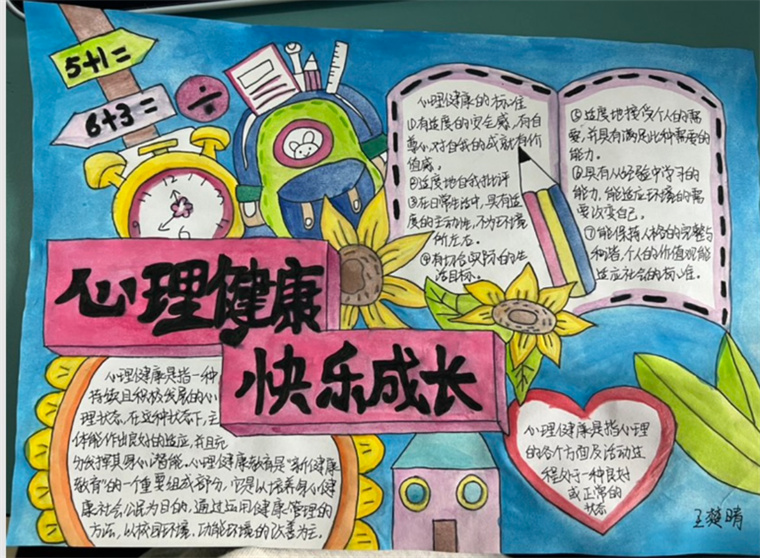 5+1=
6+3=
÷
12
6
心理健康
快乐成长
心理健康的标准
①有适度的安全感,有自
尊心,对自我的成就有价
值感。
②适度地自我批评
③在日常生活中,具有适
度的主动性,不为环境
所左右。
④有切合实际的生
活目标。
⑤适度地接受个人的需
要,并具有满足此种需要的
能力。
⑥具有从经验中学习的
能力,能适应环境的需
要改变自己。
⑦能保持人格的完整与
和谐,个人的价值观能
适应社会的标准。
心理健康是指一种
持续且积极发展的心
理状态,在这种状态下,主
体能作出良好的适应,并且充
分发挥其身心潜能。心理健康教育是“新健康
教育”的一个重要组成部分,它是以培养身心健
康社会公民为目的,通过运用健康管理的
方法,以校园环境、功能环境的改善为主。
心理健康是指心理
的各个方面及活动过
程处于一种良好
或正常的
状态
王懿晴